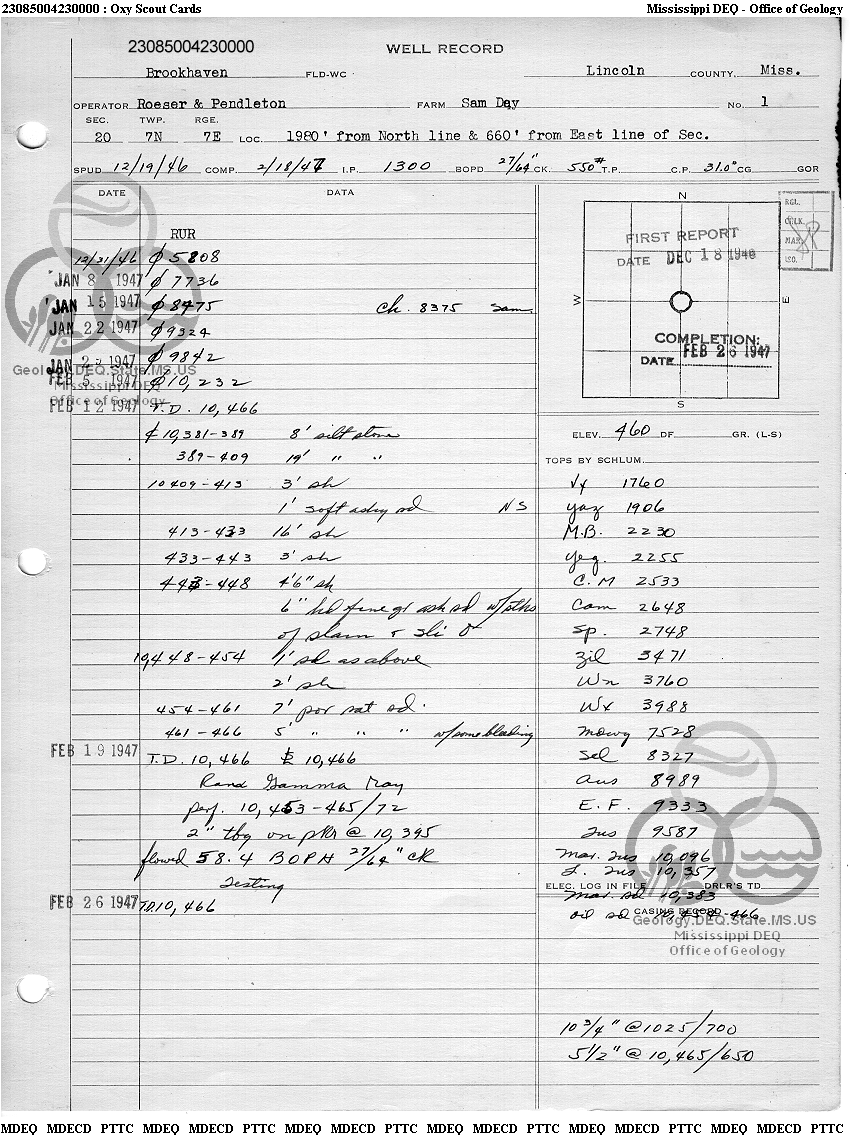 23085004230000 : Oxy Scout Cards Mississippi DEQ - Office of Geology
23085004230000
WELL RECORD
Brookhaven FLD-WC Lincoln COUNTY Miss.
OPERATOR Roeser & Pendleton FARM Sam Day No. 1
SEC. TWP. RGE.
20 7N 7E LOC. 1980' from North line & 660' from East line of Sec.
SPUD 12/19/46 COMP. 2/18/47 I.P. 1300 BOPD 27/64" CK. 550# T.P. C.P. 31.0° CG GOR
DATE DATA
RUR
12/31/46 ⌀ 5808
JAN 8 1947 ⌀ 7736
JAN 15 1947 ⌀ 8475 Ch. 8375 Sam
JAN 22 1947 ⌀ 9324
JAN 1947 ⌀ 9842
FEB 5 1947 ⌀ 10,232
FEB 12 1947 T.D. 10,466
₵ 10,381-389 8' silt stone
389-409 19' " "
10409-413 3' sh
1' soft ashy sd NS
413-433 16' sh
433-443 3' sh
443-448 4'6" sh
6" hd fine gr ash sd w/pths
of stain & sli
10,448-454 1' sd as above
2' sh
454-461 7' por sat sd.
461-466 5' " " " w/some bleeding
FEB 19 1947 T.D. 10,466 10,466
Rand Gamma Ray
perf. 10,453-465/72
2" tbg on pkr @ 10,395
flowed 58.4 BOPH 27/64" CK
Testing
FEB 26 1947 T.D. 10,466
N
W E
S
FIRST REPORT
DATE DEC 18 1946
COMPLETION:
DATE FEB 26 1947
RGL.
CHK.
MAP
ISO.
ELEV. 460 DF GR. (L-S)
TOPS BY SCHLUM.
Vx 1760
yaz 1906
M.B. 2230
yeg. 2255
C.M 2533
Cam 2648
Sp. 2748
Zil 3471
Wn 3760
Wx 3988
mdwy 7528
Sel 8327
Aus 8989
E.F. 9333
Tus 9587
Mar. Tus 10,096
L. Tus 10,357
ELEC. LOG IN FILE DRLR'S TD
Mar. sd 10,383
CASING RECORD
oil sd 466
10 3/4" @ 1025/700
5 1/2" @ 10,465/650
Geology.DEQ.State.MS.US
Mississippi DEQ
Office of Geology
Geology.DEQ.State.MS.US
Mississippi DEQ
Office of Geology
MDEQ MDECD PTTC MDEQ MDECD PTTC MDEQ MDECD PTTC MDEQ MDECD PTTC MDEQ MDECD PTTC MDEQ MDECD PTTC